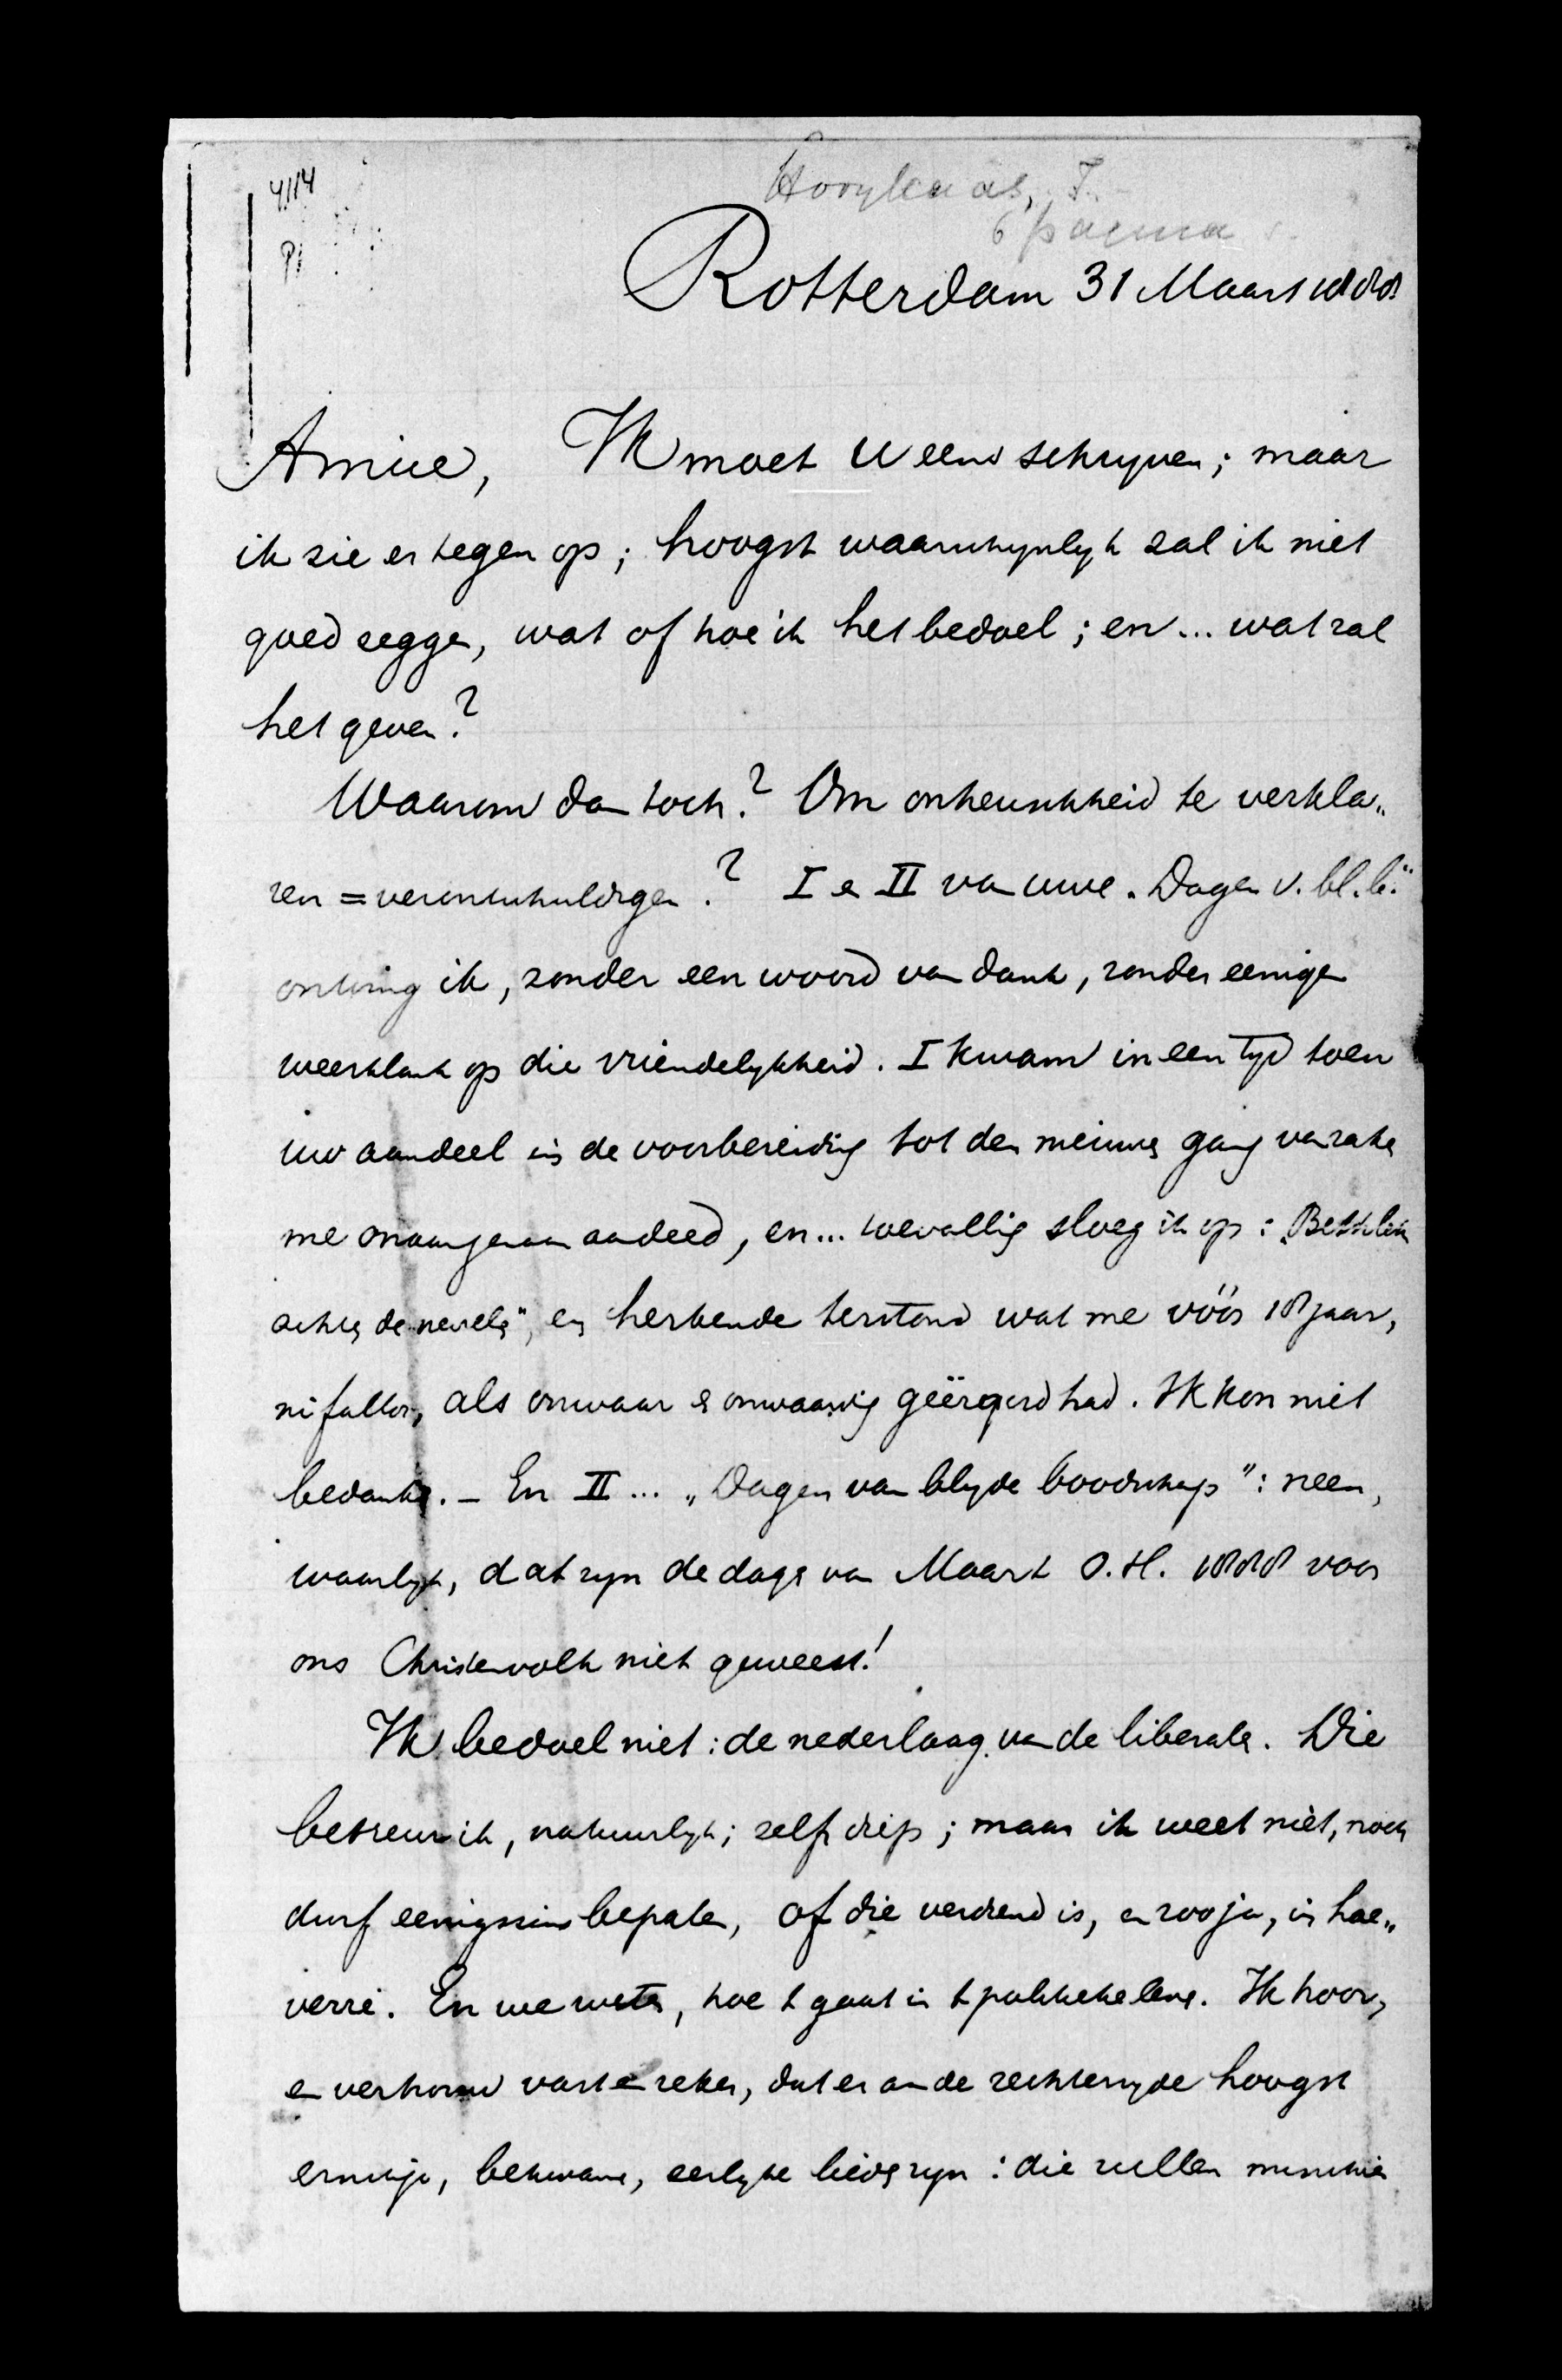 4114
Hooykaas, I.
6 pagina's.
Pi
Rotterdam 31 Maart 1888
Amice, Ik moet U eens schryven; maar
ik zie er tegen op; hoogst waarschynlyk zal ik niet
goed zeggen, wat of hoe ik het bedoel; en... wat zal
het geven?
Waarom dan toch? Om onheuschheid te verkla„
ren = verontschuldigen? I en II van uwe „Dagen v. bl. b."
ontving ik, zonder een woord van dank, zonder eenigen
weerklank op die vriendelykheid. I kwam in een tyd toen
uw aandeel in de voorbereiding tot den nieuwen gang van zaken
me onaangenaam aandeed, en... toevallig sloeg ik op: „Bethlehem
achter de nevels", en herkende terstond wat me vóór 18 jaar,
ni fallor, als onwaar en onwaardig geërgerd had. Ik kon niet
bedanken. – En II ... „Dagen van blyde boodschap": neen,
waarlyk, dat zyn de dagen van Maart O. H. 1888 voor
ons Christenvolk niet geweest!
Ik bedoel niet: de nederlaag van de liberalen. Die
betreur ik, natuurlyk; zelfs diep; maar ik weet niet, noch
durf eenigszins bepalen, of die verdiend is, en zoo ja, in hoe„
verre. En we weten, hoe 't gaat in 't politieke leven. Ik hoor,
en vertrouw vast en zeker, dat er aan de rechterzyde hoogst
ernstige, bekwame, eerlyke lieden zyn: die zullen misschien